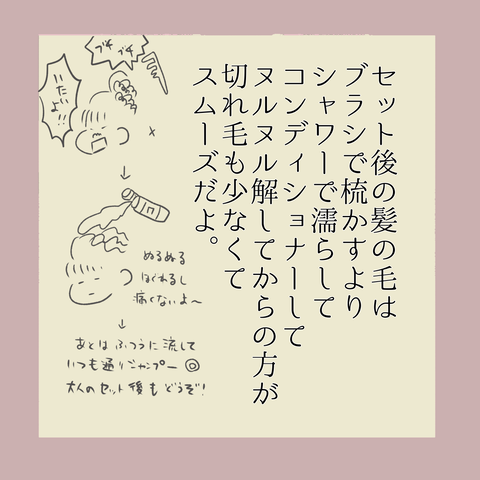 セット後の髪の毛は
ブラシで梳かすより
シャワーで濡らして
コンディショナーして
ヌルヌル解してからの方が
切れ毛も少なくて
スムーズだよ。
ブチ
ブチ
いたいよ!!
ぬるぬる
ほぐれるし
痛くないよ〜
あとは ふつうに 流して
いつも通りシャンプー ◎
大人のセット後も どうぞ!